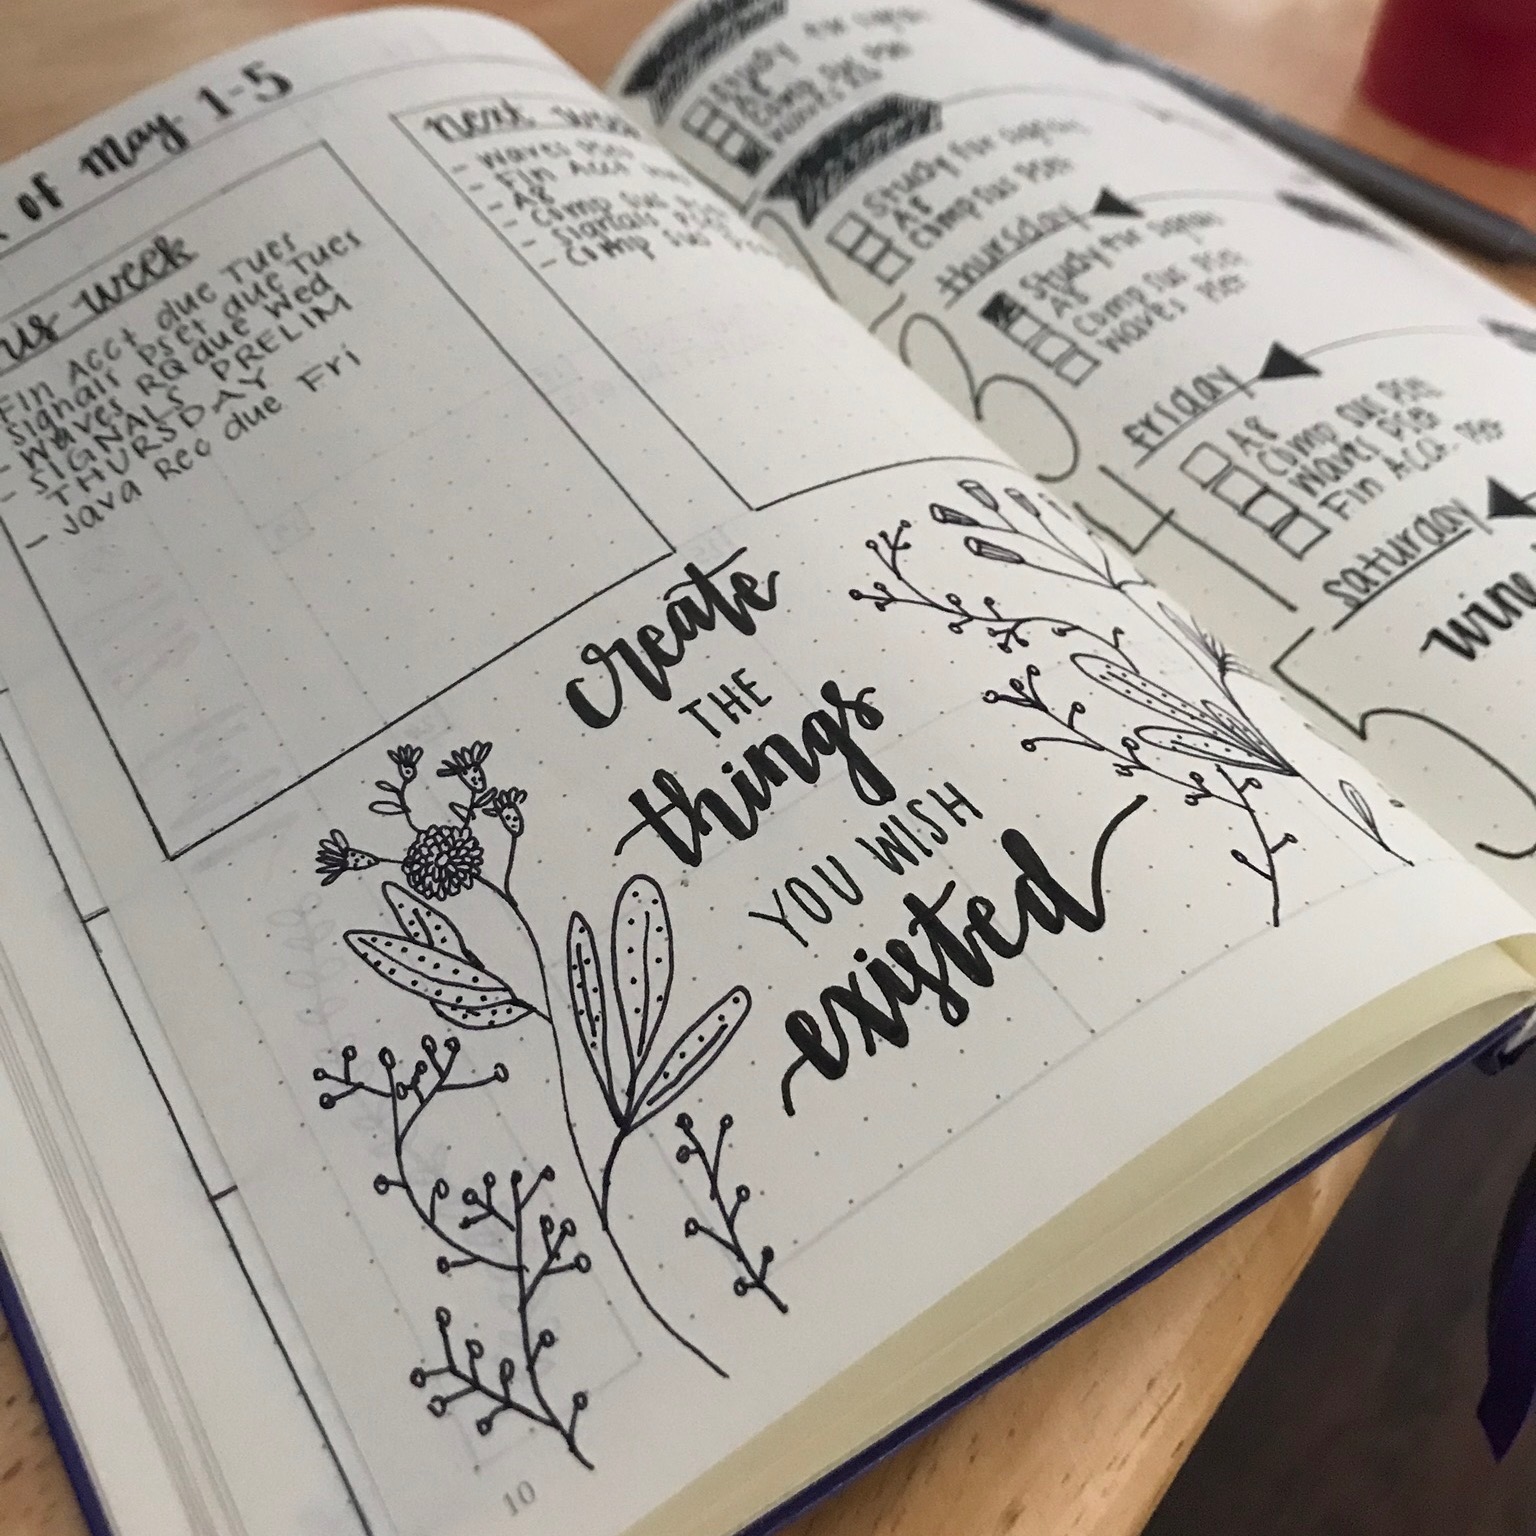 of May 1-5
week
Fin Acct due Tues
Signals Pset due Tues
- Waves RQ due Wed
- SIGNALS PRELIM
THURSDAY
- Java Rec due Fri
next
- Waves Pset
- Fin Acct
- A8
- Comp Sus
- Signals
- Comp Sus
create
THE
things
YOU WISH
existed
10
Study for signals
A8
Comp Sus Pset
Study for signals
A8
Comp Sus Pset
thursday
3
Study for signals
A8
Comp Sus Pset
Waves Pset
friday
4
A8
Comp Sus Pset
Waves Pset
Fin Acct. Pset
saturday
5